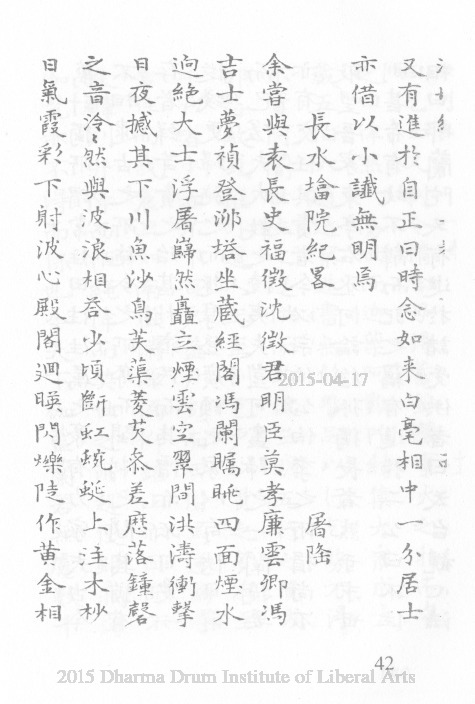 又有進於自正曰時念如来白毫相中　分居士
亦借以小讖無明焉
長水塔院紀畧　屠隆
余嘗與袁長史福徵沈徵君明臣莫孝廉雲卿馮
吉士夢禎登泖塔坐藏經閣馮闌矚眺四面煙水
逈絕大士浮屠巋然矗立煙雲空翠間洪濤衝擊
日夜撼其下川魚沙鳥芙蕖菱芡叅差歷落鍾磬
之音泠泠然與波浪相荅少頃斷虹蜿蜒上注木杪
日氣霞彩下射波心殿閣廻暎閃爍陡作黃金相
2015-04-17
42
2015 Dharma Drum Institute of Liberal Arts